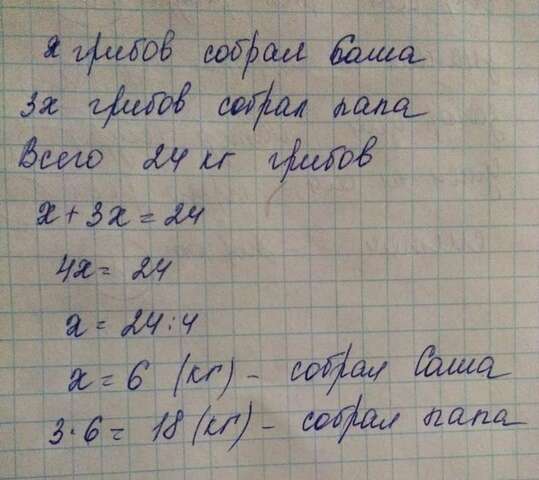 х грибов собрал Саша
3х грибов собрал папа
Всего 24 кг грибов
х + 3х = 24
4х = 24
х = 24 : 4
х = 6 (кг) - собрал Саша
3 · 6 = 18 (кг) - собрал папа